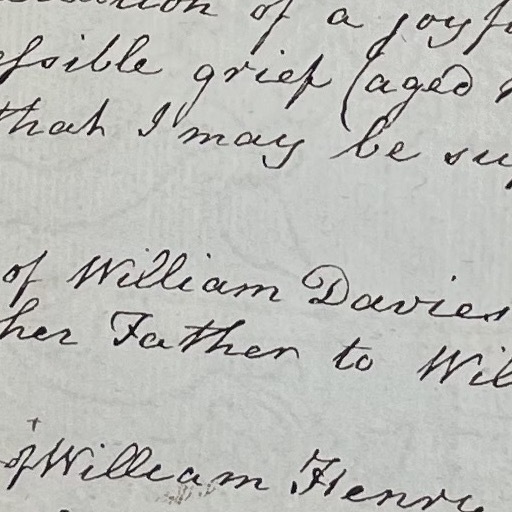 of a joyf
essible grief (aged
that I may be sup
of William Davies
her Father to Wil
of William Henry